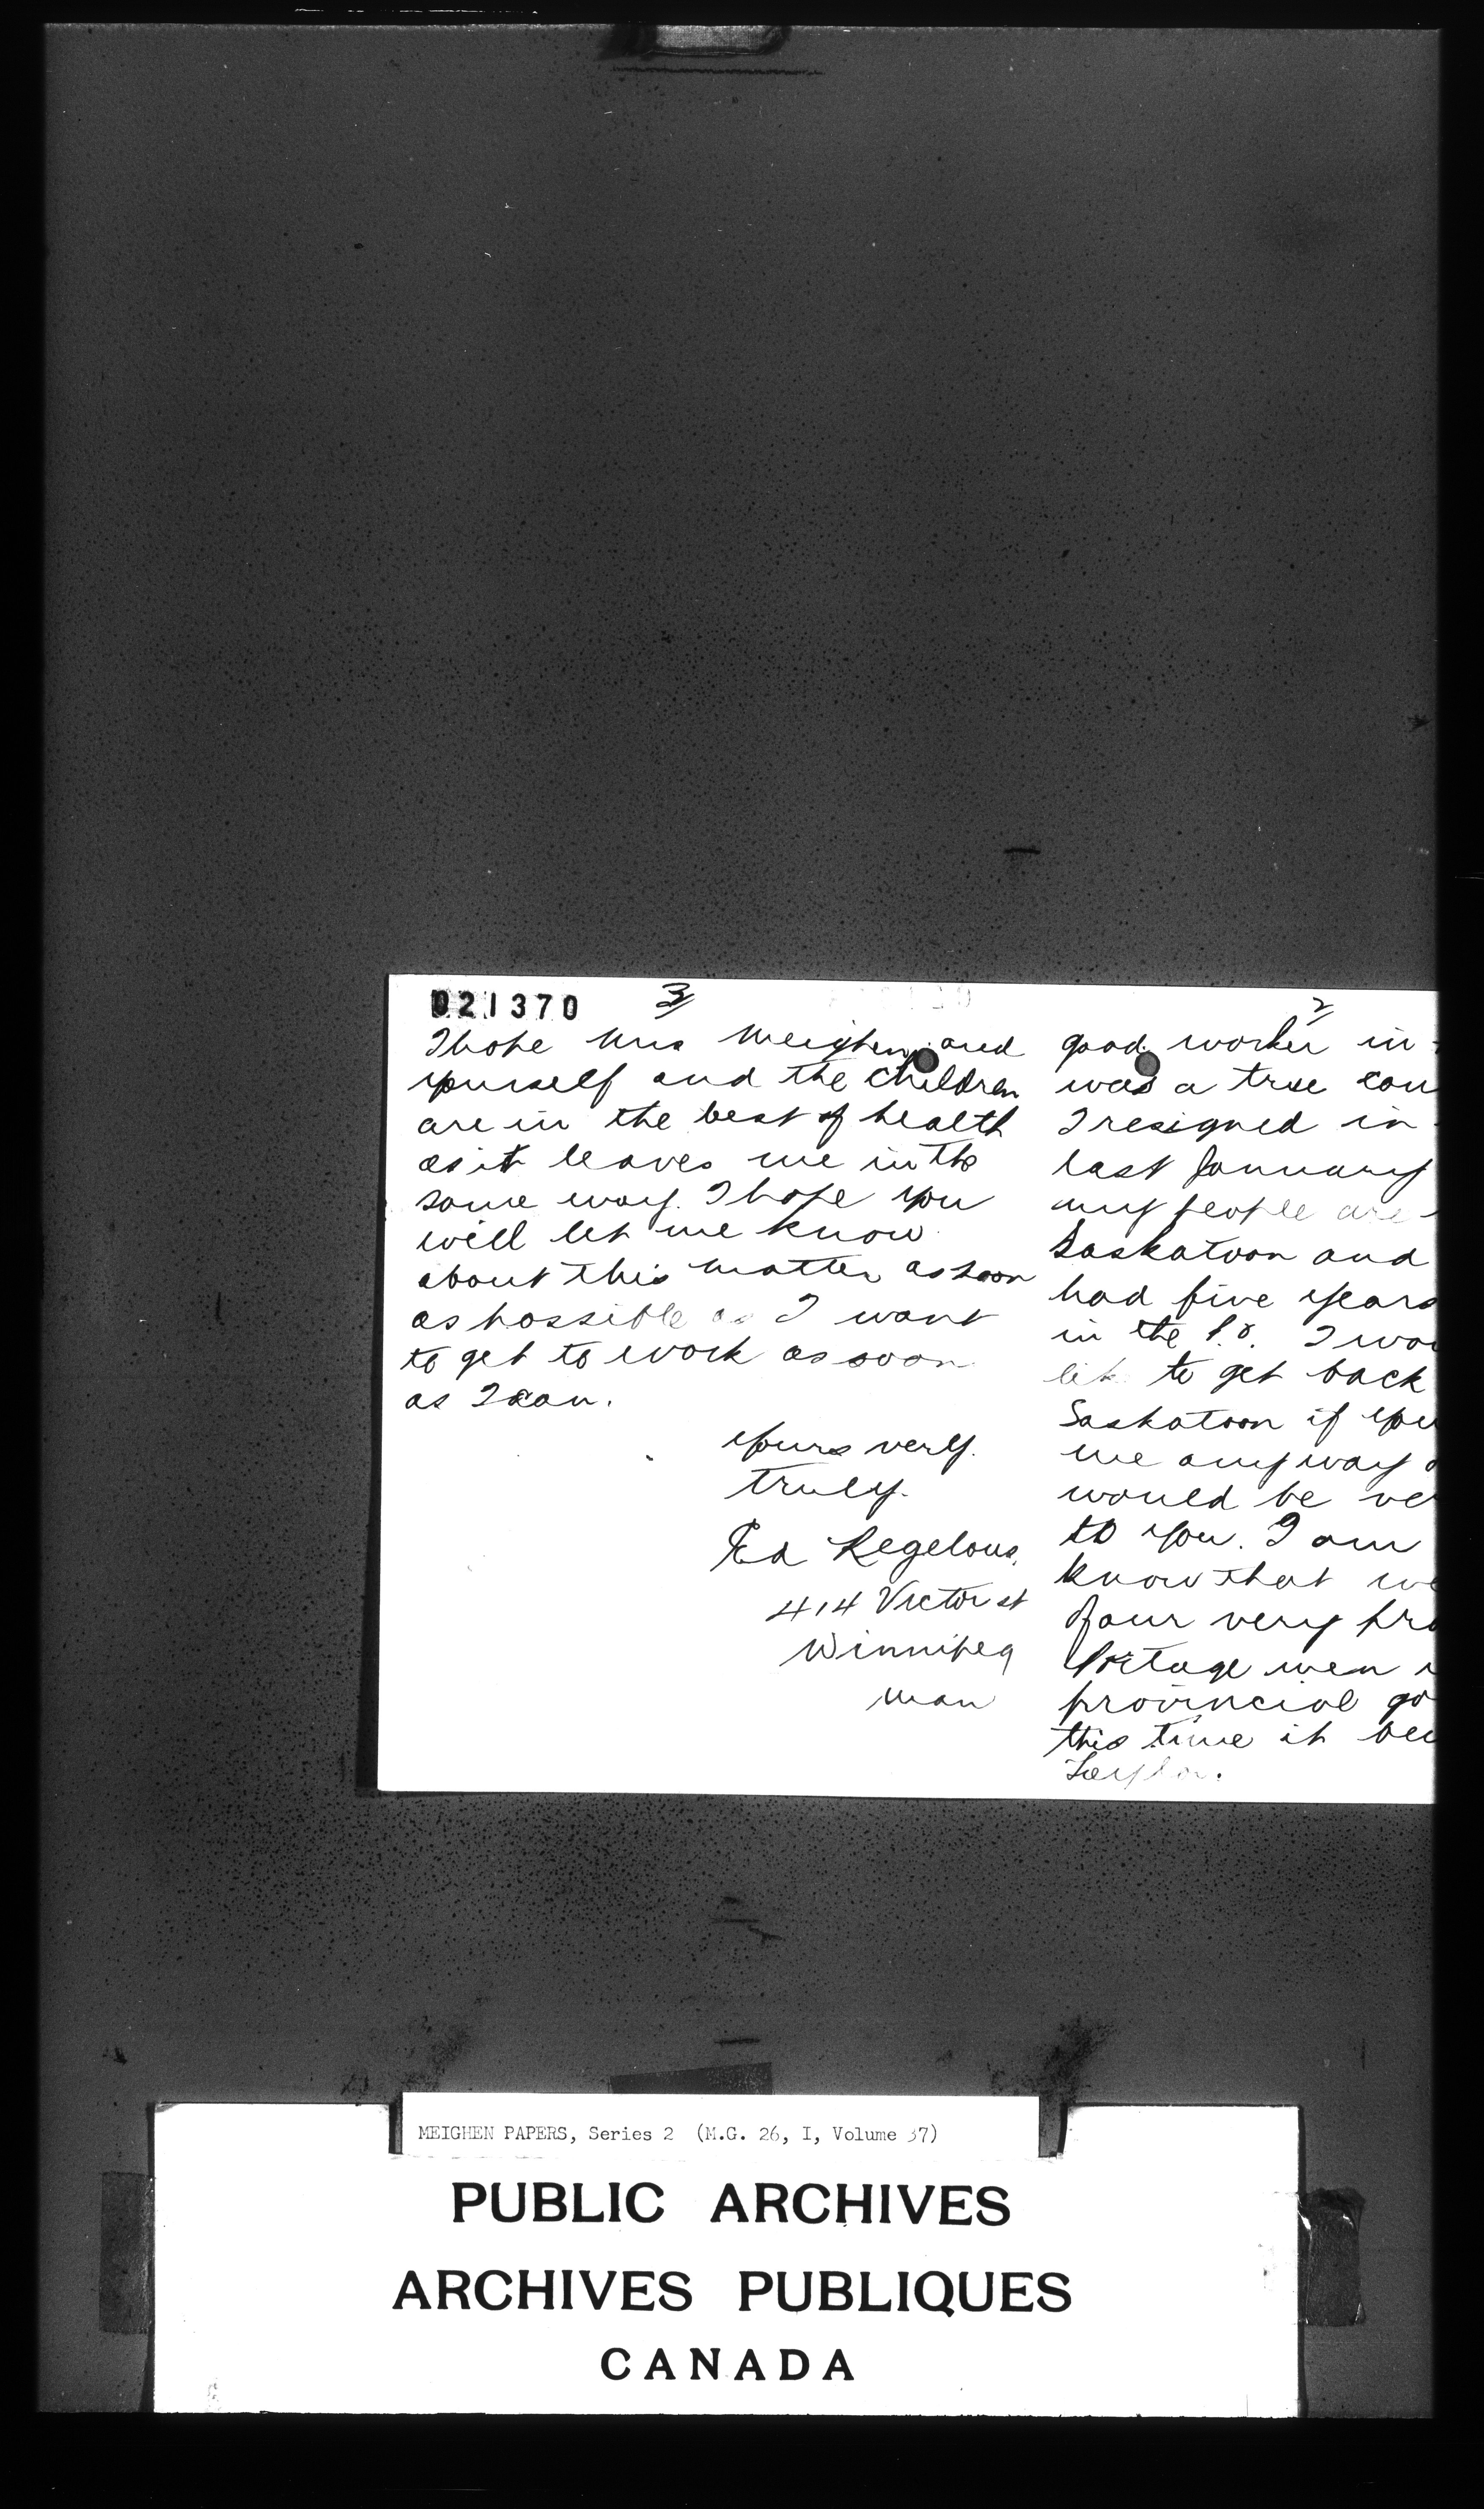 021370
3
I hope Mrs Meighen and
yourself and the children
are in the best of health
as it leaves me in the
same way. I hope you
will let me know
about this matter as soon
as possible as I want
to get to work as soon
as I can.
Yours very
truly.
Ed Regelous.
414 Victor st
Winnipeg
Man
2
good worker in
was a true con
I resigned in
last January
my people are
Saskatoon and
had five years
in the P.O. I wou
like to get back
Saskatoon if you
me any way
would be ve
to you. I am
know that we
of our very pro
Portage men
provincial go
this time it bei
Taylor.
MEIGHEN PAPERS, Series 2 (M.G. 26, I, Volume 37)
PUBLIC ARCHIVES
ARCHIVES PUBLIQUES
CANADA